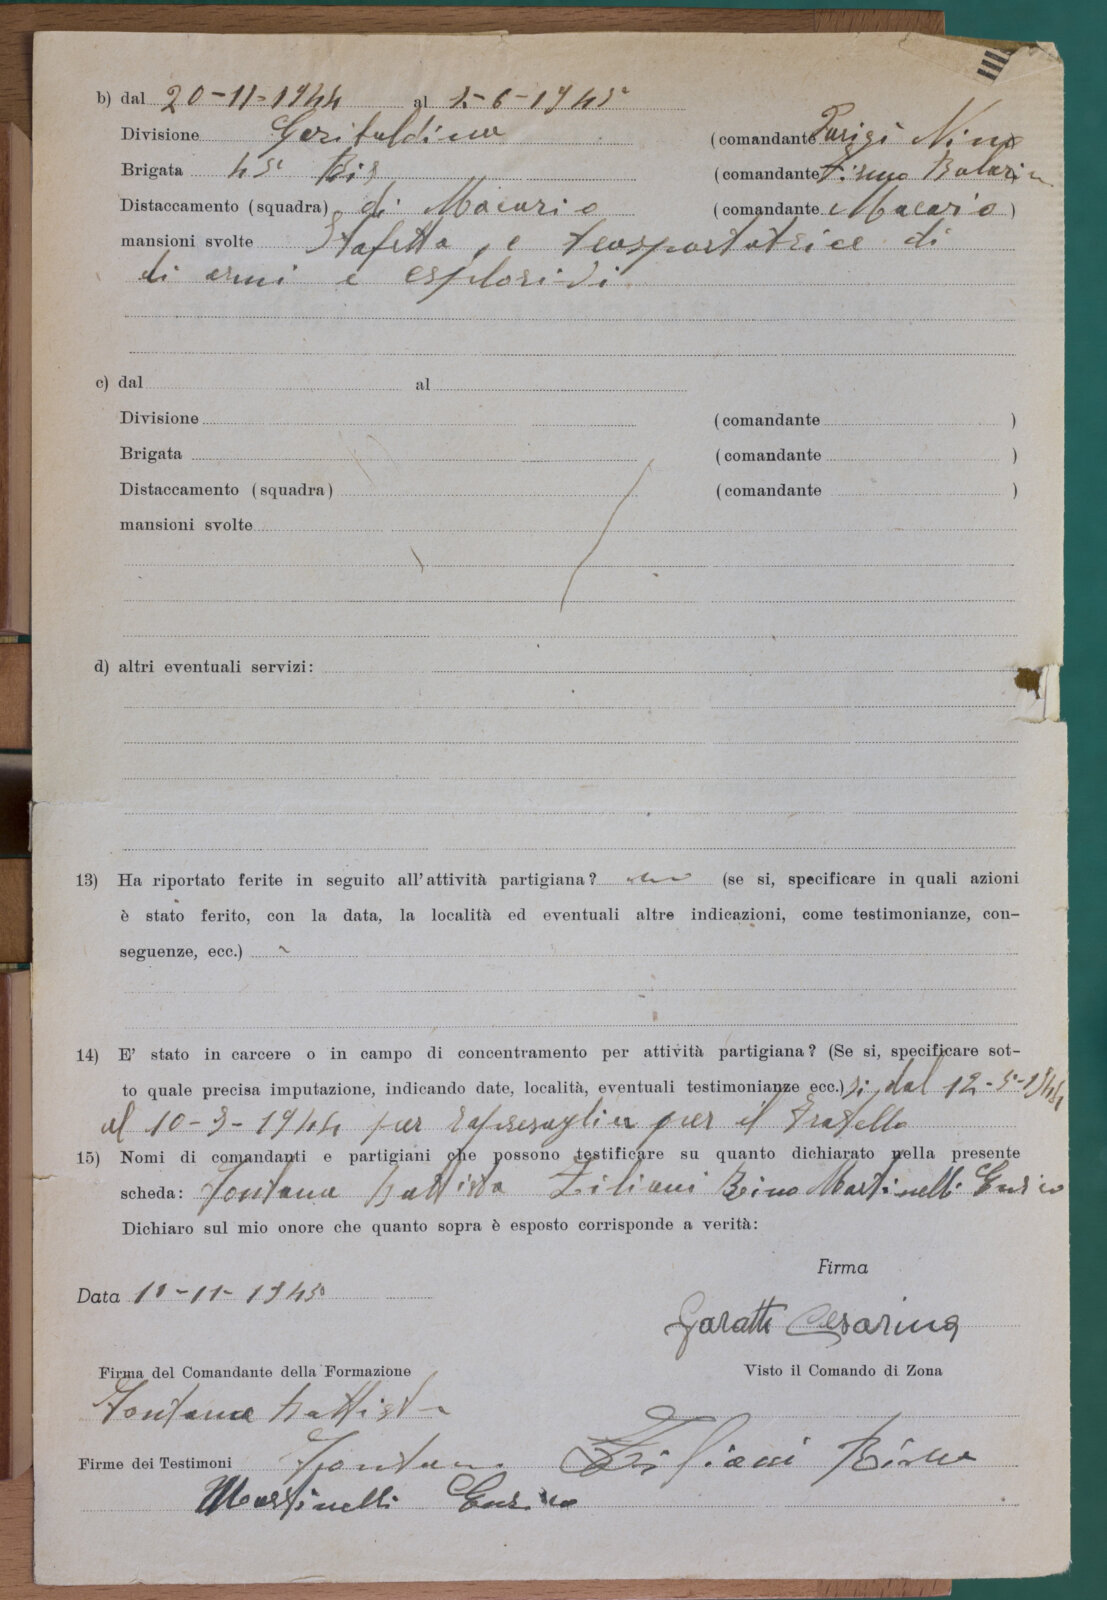 b) dal 20-11-1944 al 1-6-1945
Divisione Garibaldina (comandante Parigi Nino
Brigata 45ª Bis (comandante Firmo
Distaccamento (squadra) di Macario (comandante Macario)
mansioni svolte Stafetta, e trasportatrice di
di armi e esplosivi
c) dal al
Divisione (comandante )
Brigata (comandante )
Distaccamento (squadra) (comandante )
mansioni svolte
d) altri eventuali servizi:
13) Ha riportato ferite in seguito all'attività partigiana? no (se si, specificare in quali azioni
è stato ferito, con la data, la località ed eventuali altre indicazioni, come testimonianze, con-
seguenze, ecc.)
14) E' stato in carcere o in campo di concentramento per attività partigiana? (Se si, specificare sot-
to quale precisa imputazione, indicando date, località, eventuali testimonianze ecc.) si, dal 12-5-1944
al 10-9-1944 per rapresaglia per il fratello
15) Nomi di comandanti e partigiani che possono testificare su quanto dichiarato nella presente
scheda: Fontana Battista Ziliani Bino Martinelli Enrico
Dichiaro sul mio onore che quanto sopra è esposto corrisponde a verità:
Firma
Data 11-11-1945
Garatti Cesarina
Firma del Comandante della Formazione Visto il Comando di Zona
Fontana Battista
Firme dei Testimoni Fontana Ziliani Bino
Martinelli Enrico